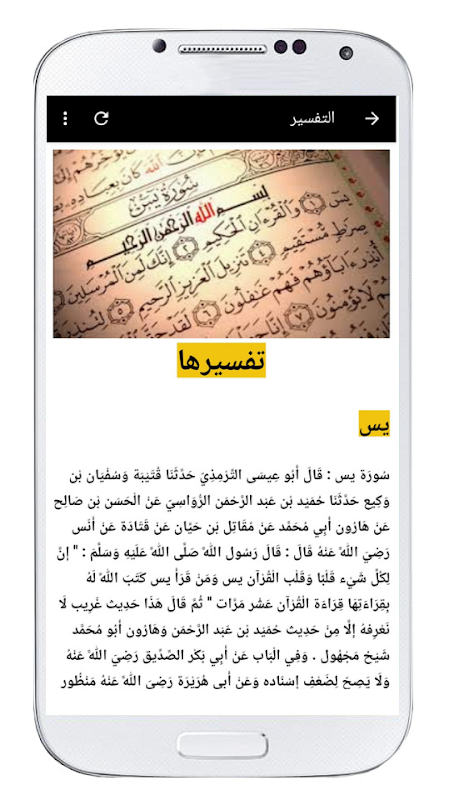 التفسير
الله كان بعباده
سورة يس
بسم الله الرحمن الرحيم
يس ١ والقرءان الحكيم ٢ إنك لمن المرسلين
صرط مستقيم ٤ تنزيل العزيز الرحيم ٥ لتنذر
أنذر ءاباؤهم فهم غفلون ٦ لقد
لا يؤمنون ٧
تفسيرها
يس
سُورَة يس : قَالَ أَبُو عِيسَى التِّرْمِذِيّ حَدَّثَنَا قُتَيْبَة وَسُفْيَان بْن
وَكِيع حَدَّثَنَا حُمَيْد بْن عَبْد الرَّحْمَن الرُّوَاسِيّ عَنْ الْحَسَن بْن صَالِح
عَنْ هَارُون أَبِي مُحَمَّد عَنْ مُقَاتِل بْن حَيَّان عَنْ قَتَادَة عَنْ أَنَس
رَضِيَ اللَّه عَنْهُ قَالَ : قَالَ رَسُول اللَّه صَلَّى اللَّه عَلَيْهِ وَسَلَّمَ : " إِنَّ
لِكُلِّ شَيْء قَلْبًا وَقَلْب الْقُرْآن يس وَمَنْ قَرَأَ يس كَتَبَ اللَّه لَهُ
بِقِرَاءَتِهَا قِرَاءَة الْقُرْآن عَشْر مَرَّات " ثُمَّ قَالَ هَذَا حَدِيث غَرِيب لَا
نَعْرِفهُ إِلَّا مِنْ حَدِيث حُمَيْد بْن عَبْد الرَّحْمَن وَهَارُون أَبُو مُحَمَّد
شَيْخ مَجْهُول . وَفِي الْبَاب عَنْ أَبِي بَكْر الصِّدِّيق رَضِيَ اللَّه عَنْهُ
وَلَا يَصِحّ لِضَعْفِ إِسْنَاده وَعَنْ أَبِي هُرَيْرَة رَضِيَ اللَّه عَنْهُ مَنْظُور